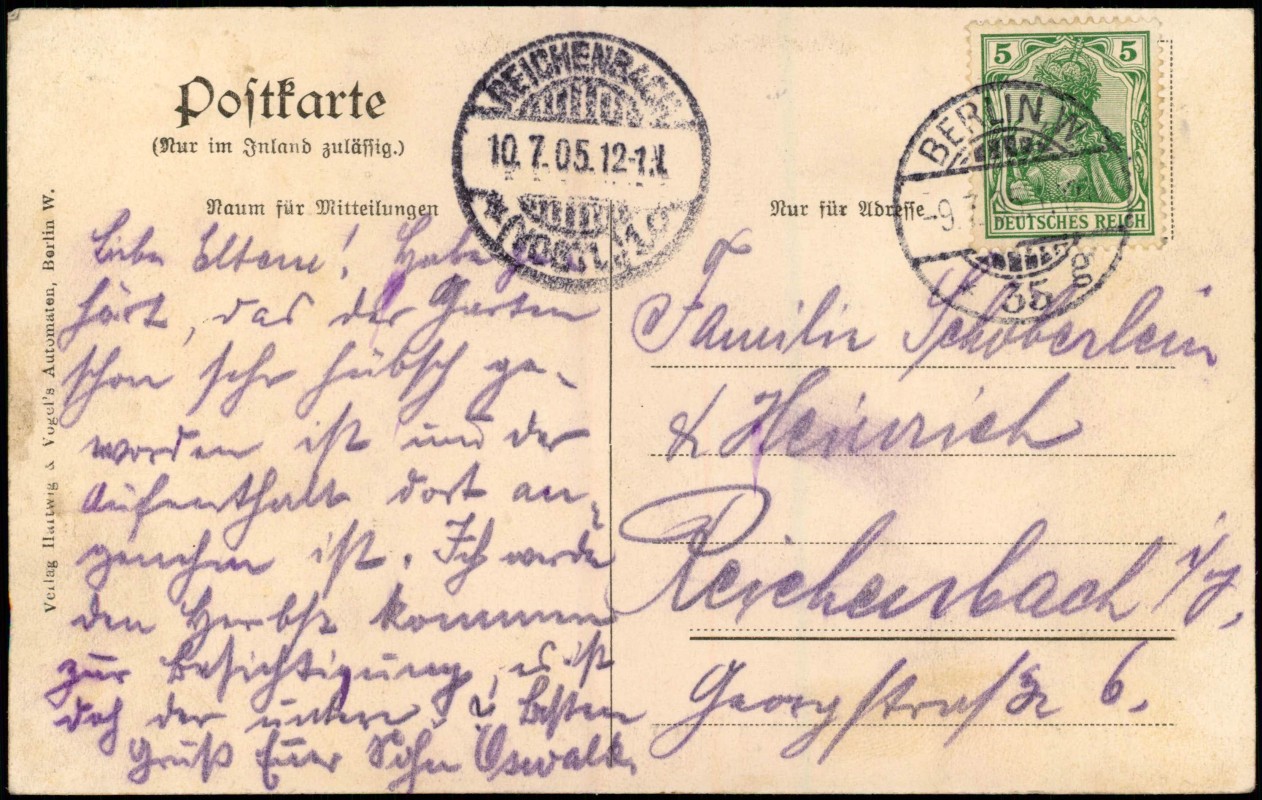 Postkarte
(Nur im Inland zulässig.)
Raum für Mitteilungen
Nur für Adresse
Verlag Hartwig & Vogel's Automaten, Berlin W.
REICHENBACH
10.7.05.12-1.N.
(VOGTL.)
5 5
DEUTSCHES REICH
BERLIN W.
-9.7.
35
Liebe Eltern! Habe ge-
hört, das der Garten
schon sehr hübsch ge-
worden ist und der
Aufenthalt dort an-
genehm ist. Ich werde
den Herbst kommen
zur Besichtigung, es ist
doch der untere
Besten
Gruß Euer Sohn Oswald.
Familie Schöberlein
& Heinrich
Reichenbach i/V.
Georgstraße 6.